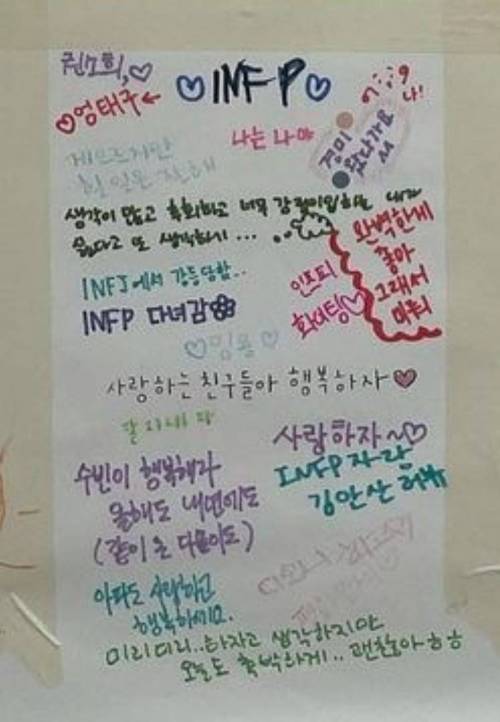 ♡INFP♡
♡엉태구←
나는 나야
게으르지만
할 일은 잘해
왔다가요
생각이 많고 후회하고 너무 감정이입하는 내가
싫다고 또 생각하기...
완벽한게
좋아
그래서
미뤄
INFJ에서 강등당함..
INFP 다녀감
인프피
화이팅♡
사랑하는 친구들아 행복하자♡
사람하자~♡
INFP 자랑
김안산
수빈이 행복해라
올해도 내년에도
(같이 온 다음이도)
아파도 사랑하고
행복하세요.
미리미리..하자고 생각하지만
오늘도 촉박하게.. 괜찮아ㅎㅎ